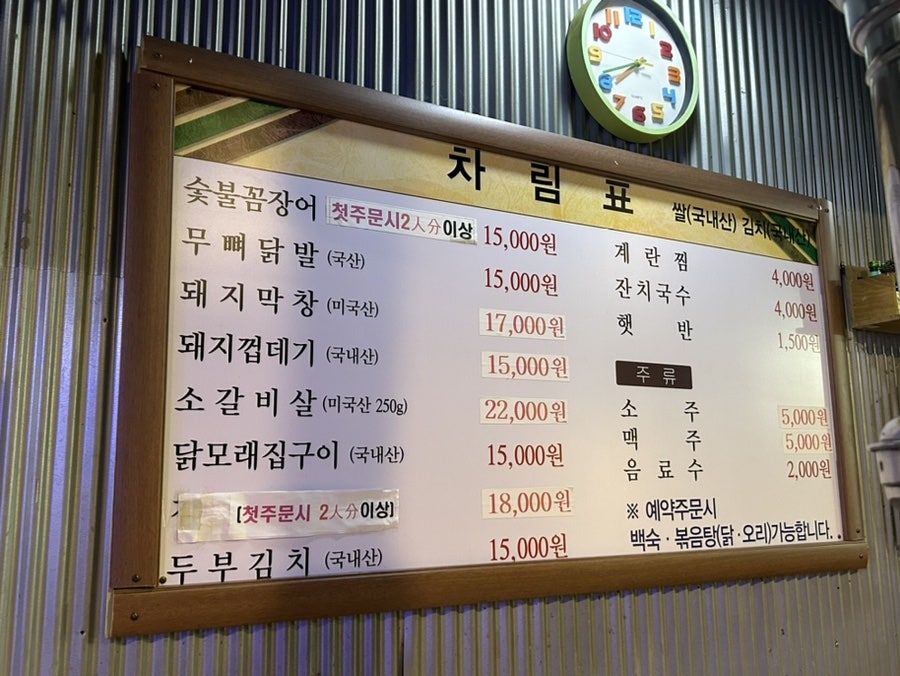 차림표
쌀(국내산) 김치(국내산)
숯불꼼장어 첫주문시2人分이상 15,000원
무뼈닭발 (국산) 15,000원
돼지막창 (미국산) 17,000원
돼지껍데기 (국내산) 15,000원
소갈비살 (미국산 250g) 22,000원
닭모래집구이 (국내산) 15,000원
[첫주문시 2人分이상] 18,000원
두부김치 (국내산) 15,000원
계란찜 4,000원
잔치국수 4,000원
햇반 1,500원
주류
소주 5,000원
맥주 5,000원
음료수 2,000원
※ 예약주문시
백숙·볶음탕(닭·오리)가능합니다.
12
1
2
3
4
5
6
7
8
9
10
11